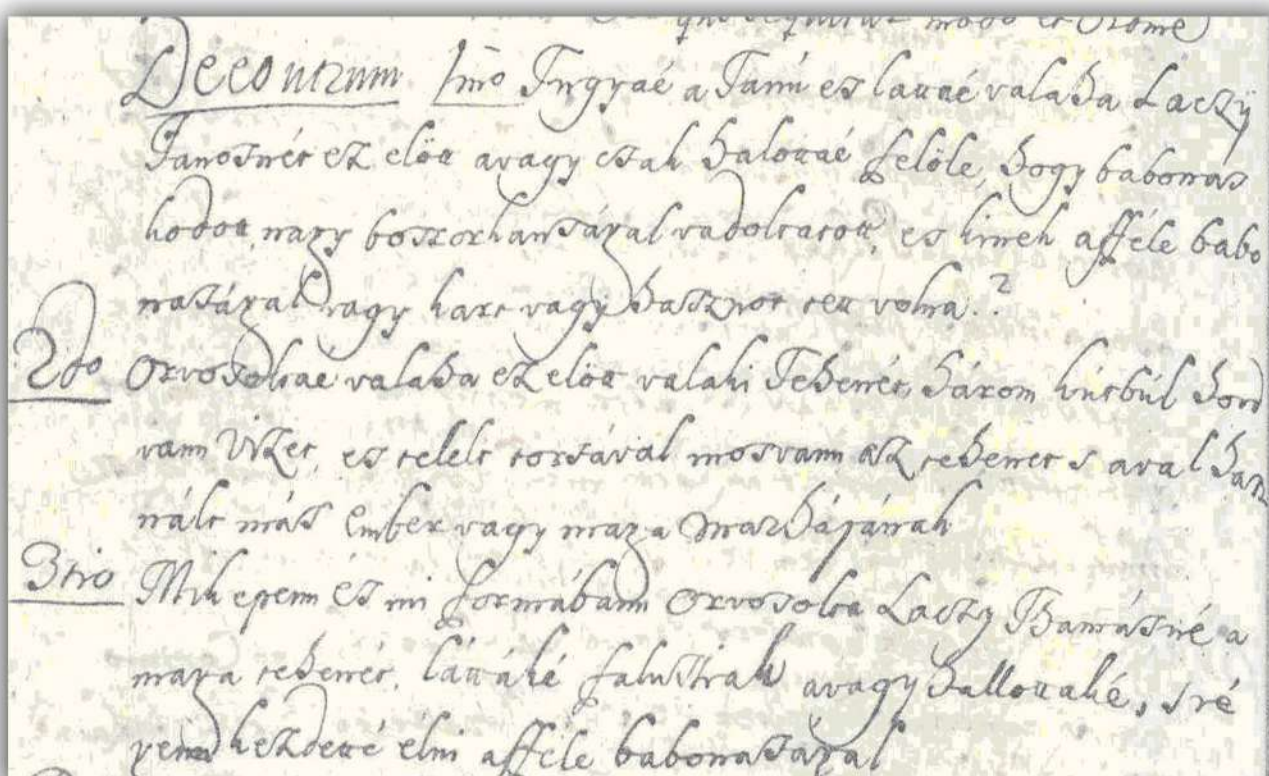 quo sequitur modo et Ordine)
Deeo utrum 1mo Tugyaé a Tanú es lattaé valaha Laczÿ
Janosnét ez elött avagy csak halottaé felöle, hogy babonas
kodott, nagy boszorkansagal vadoltatott, es kinek afféle babo
naságal vagy kart vagy hasznot tett volna?
2do Orvosoltae valaha ez elött valaki Tehenét, három kútbúl hord
vann Vizet, es telelt torsával mosvann az tehenet s aval hasz
nált más Ember vagy maga Marhájának
3tio Mikepenn és mi formábann Orvosolta Laczy Thamásné a
maga tehenét, láttáké falustiak avagy hallottaké, s ré
gen kezdetté élni afféle babonaságal